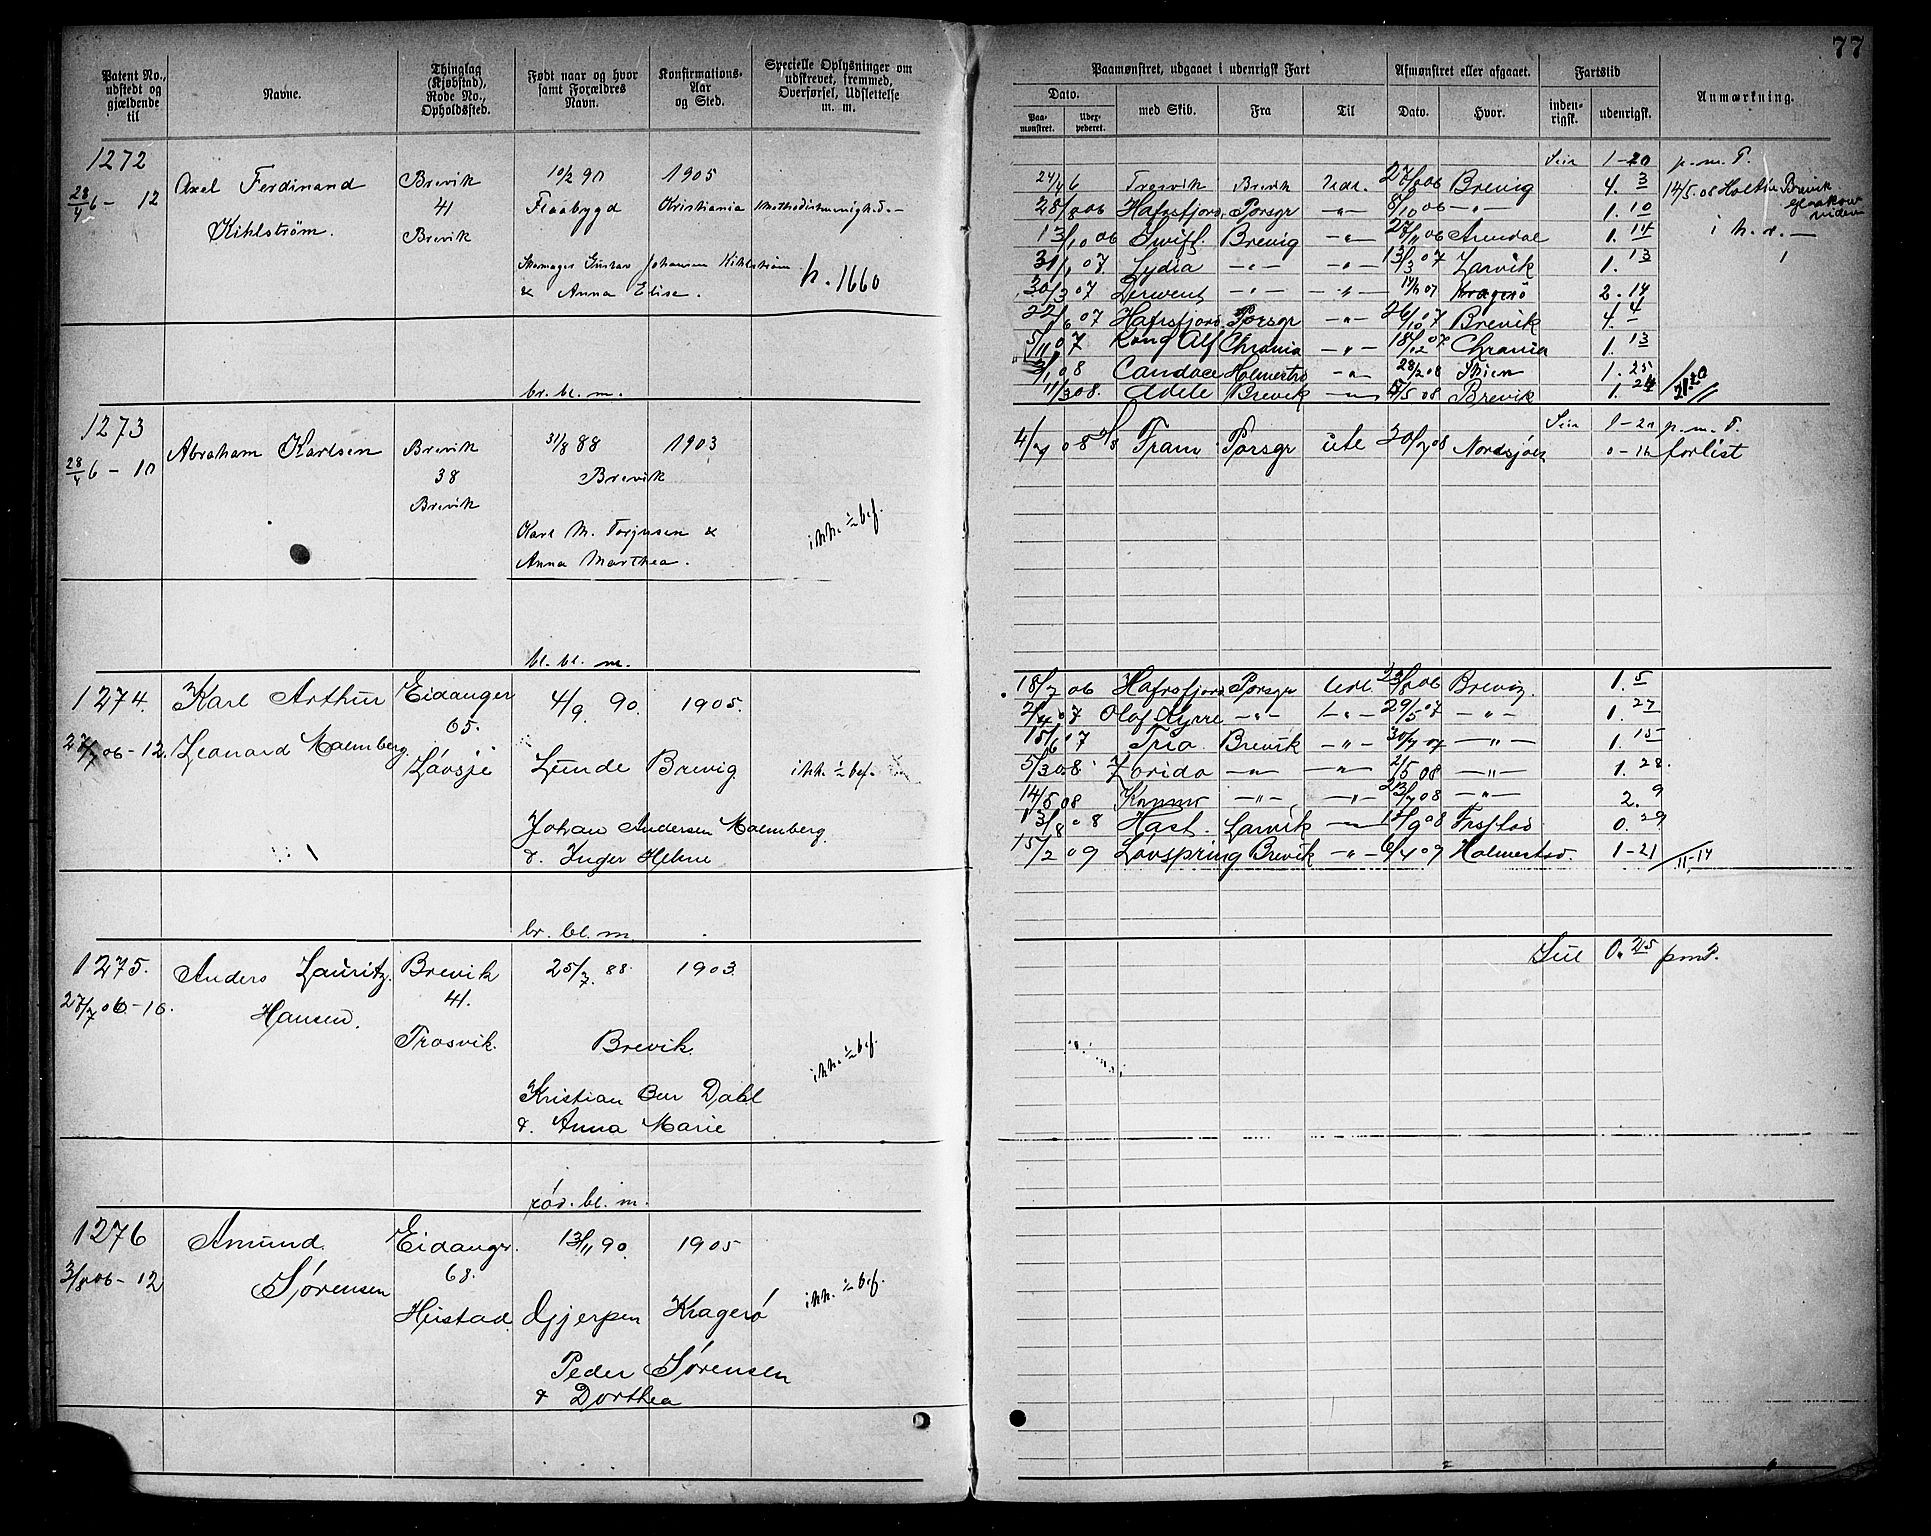 77
Patent No., udstedt og gjældende til
Navne.
Thinglag (Kjøbstad), Rode No., Opholdssted.
Født naar og hvor samt Forældres Navn.
Konfirmations-Aar og Sted.
Specielle Oplysninger om udskrevet, fremmed, Overførsel, Udslettelse m. m.
Paamønstret, udgaaet i udenrigsk Fart
Afmønstret eller afgaaet.
Fartstid
Anmærkning.
Dato.
Paa-mønstret.
Udex-pederet.
med Skib.
Fra
Til
Dato.
Hvor.
inden-rigsk.
udenrigsk.
1272
28/4 6 - 12
Axel Ferdinand
Kihlstrøm.
Brevik
41
Brevik
10/2 90
Flaabygd
Skomager Gustav Johansen Kihlstrøm
& Anna Elise.
1905
Kristiania
Methodistmenighed.-
h. 1660
br. bl. m.
1-20 p. m. P.
24/4 6 Trosvik Brevik Udl. 27/8 06 Brevig 4. 3 14/5.08 Brevik
28/8 06 Hafrsfjord Porsgr -"- 8/10 06 -"- 1. 10
13/10 06 Swift. Brevig -"- 27/11 06 Arendal 1. 14
31/1 07 Lydia -"- -"- 13/3 07 Larvik 1. 13
30/3 07 Derwent -"- -"- 14/6 07 Kragerø 2. 14
22/6 07 Hafrsfjord Porsgr -"- 26/10 07 Brevik 4. 4
5/11 07 Kong Alf Chrania -"- 18/12 07 Chrania 1. 13
3/1 08 Candace Holmestrd -"- 28/2 08 Skien 1. 25
11/3 08. Adele Brevik -"- 5/5 08 Brevik 1. 24
1273
28/4 6 - 10
Abraham Karlsen
Brevik
38
Brevik
31/8 88
Brevik
Karl M. Torjusen &
Anna Marthea.
1903
ikk. ½ bef.
bl. bl. m.
p. m. P.
4/7 08 Fram Porsgr ute 20/7 08 Nordsjøen 0-16 forlist
1274.
27/7 06 - 12.
Karl Arthur
Leonard Malmberg.
Eidanger
65.
Løvsjø
4/9. 90.
Lunde Brevig
Johan Andersen Malmberg.
& Inger Helene
1905.
ikk. ½ bef.
br. bl. m.
18/7 06 Hafrsfjord Porsgr Udl. 23/8 06 Brevig. 1. 5
2/4 07 Olaf Kyrre -"- -"- 29/5 07 -"- 1. 27
15/6 17 Fria Brevik -"- 30/7 07 -"- 1. 15
5/3 08 Zorida -"- -"- 2/5 08 -"- 1. 28.
14/5 08 -"- -"- 23/7 08 -"- 2. 9
13/8 08 Hast. Larvik -"- 12/9 08 Frstad 0. 29
15/2 09 Lovspring Brevik -"- 6/4 09 Holmestad. 1-21
11-14
1275.
27/7 06 - 10.
Anders Lauritz.
Hansen.
Brevik
41.
Trosvik.
25/7. 88.
Brevik.
Kristian Dahl
& Anna Marie
1903.
ikk. ½ bef.
rød. bl. m.
0. 25 pmP.
1276
3/8 06 - 12
Amund
Sørensen
Eidanger.
68.
Heistad.
13/11 90.
Gjerpen
Peder Sørensen
& Dorthea
1905
Kragerø
ikk. ½ bef.